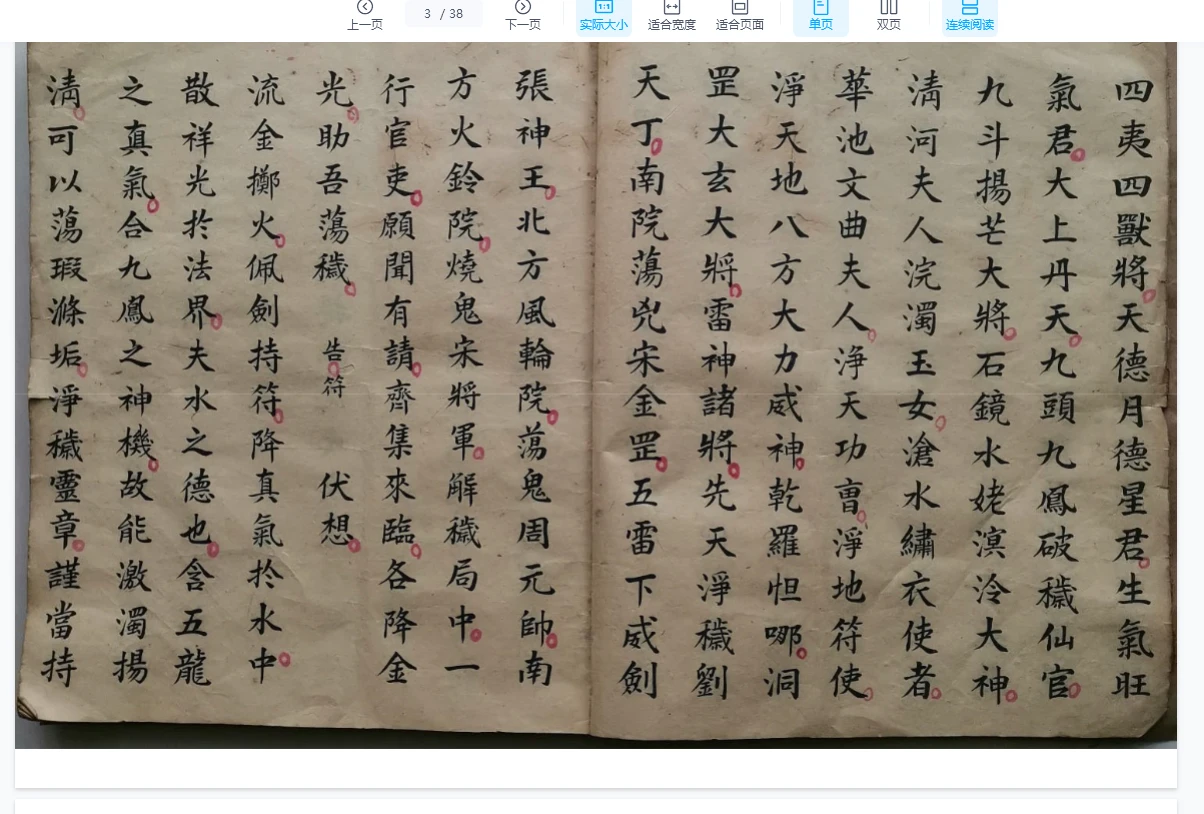 上一页
3 / 38
下一页
实际大小
适合宽度
适合页面
单页
双页
连续阅读
四夷四獸將天德月德星君生氣旺
氣君大上丹天九頭九鳳破穢仙官
九斗揚芒大將石鏡水姥溟泠大神
淸河夫人浣濁玉女滄水繡衣使者
華池文曲夫人淨天功曺淨地符使
淨天地八方大力威神乾羅怛哪洞
罡大玄大將雷神諸將先天淨穢劉
天丁南院蕩兇宋金罡五雷下威劍
張神王北方風輪院蕩鬼周元帥南
方火鈴院燒鬼宋將軍解穢局中一
行官吏願聞有請齊集來臨各降金
光助吾蕩穢 告符 伏想
流金擲火佩劍持符降真氣於水中
散祥光於法界夫水之德也含五龍
之真氣合九鳳之神機故能激濁揚
淸可以蕩瑕滌垢淨穢靈章謹當持